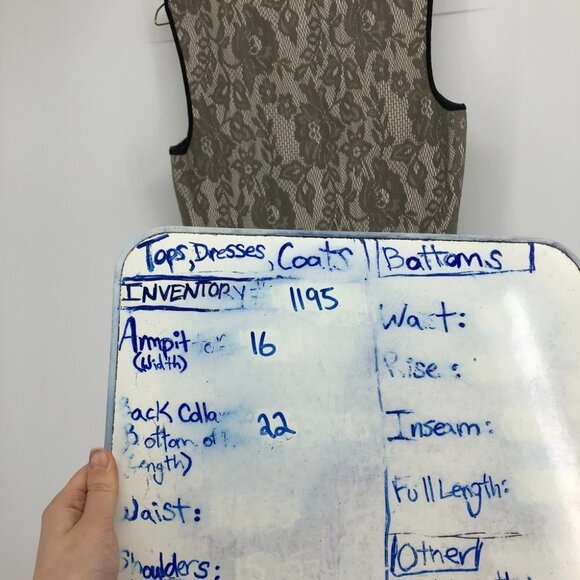 Tops, Dresses, Coats
INVENTORY# 1195
Armpit 16
(Width)
Back Colla 22
Bottom of
Length)
Waist:
Shoulders:
Bottoms
Wast:
Rise:
Inseam:
Full Length:
Other